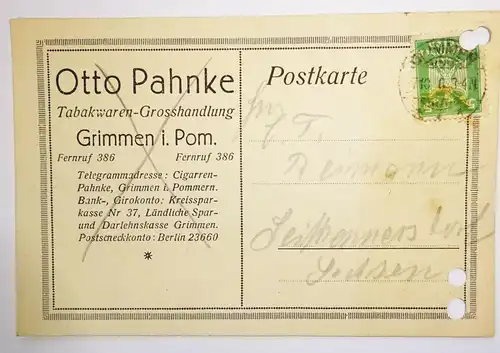 Otto Pahnke
Tabakwaren-Grosshandlung
Grimmen i. Pom.
Fernruf 386 Fernruf 386
Telegrammadresse: Cigarren-
Pahnke, Grimmen i. Pommern.
Bank-, Girokonto: Kreisspar-
kasse Nr 37, Ländliche Spar-
und Darlehnskasse Grimmen.
Postscheckkonto: Berlin 23660
Postkarte
Reimann
Sachsen